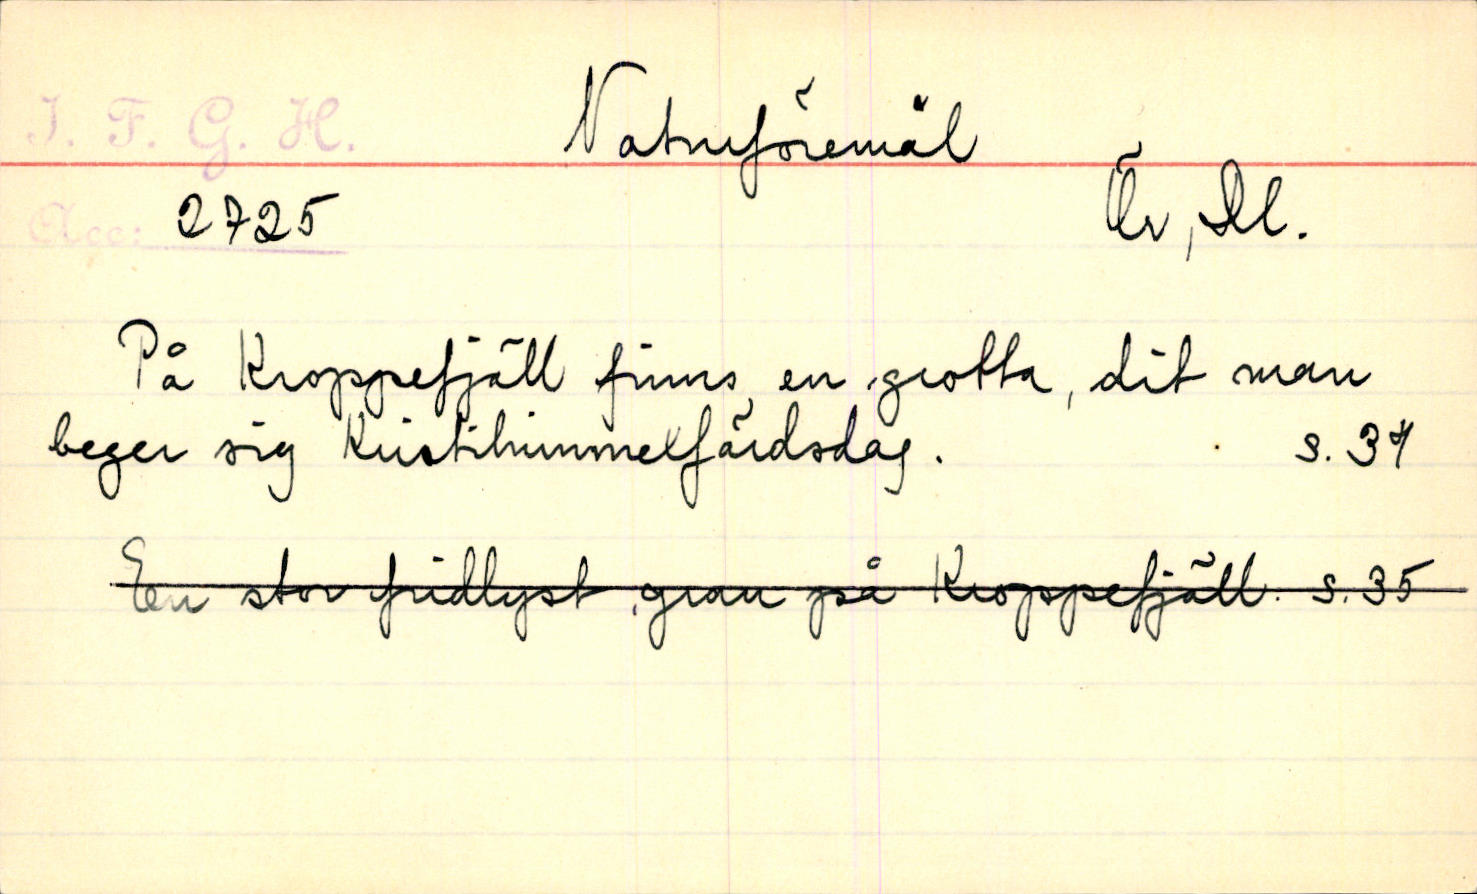 I. F. G. H.
Naturföremål
Acc: 2725
Ör, Dl.
På Kroppefjäll finns en grotta, dit man
beger sig Kristihimmelfärdsdag. s. 34
En stor fridlyst gran på Kroppefjäll. s. 35